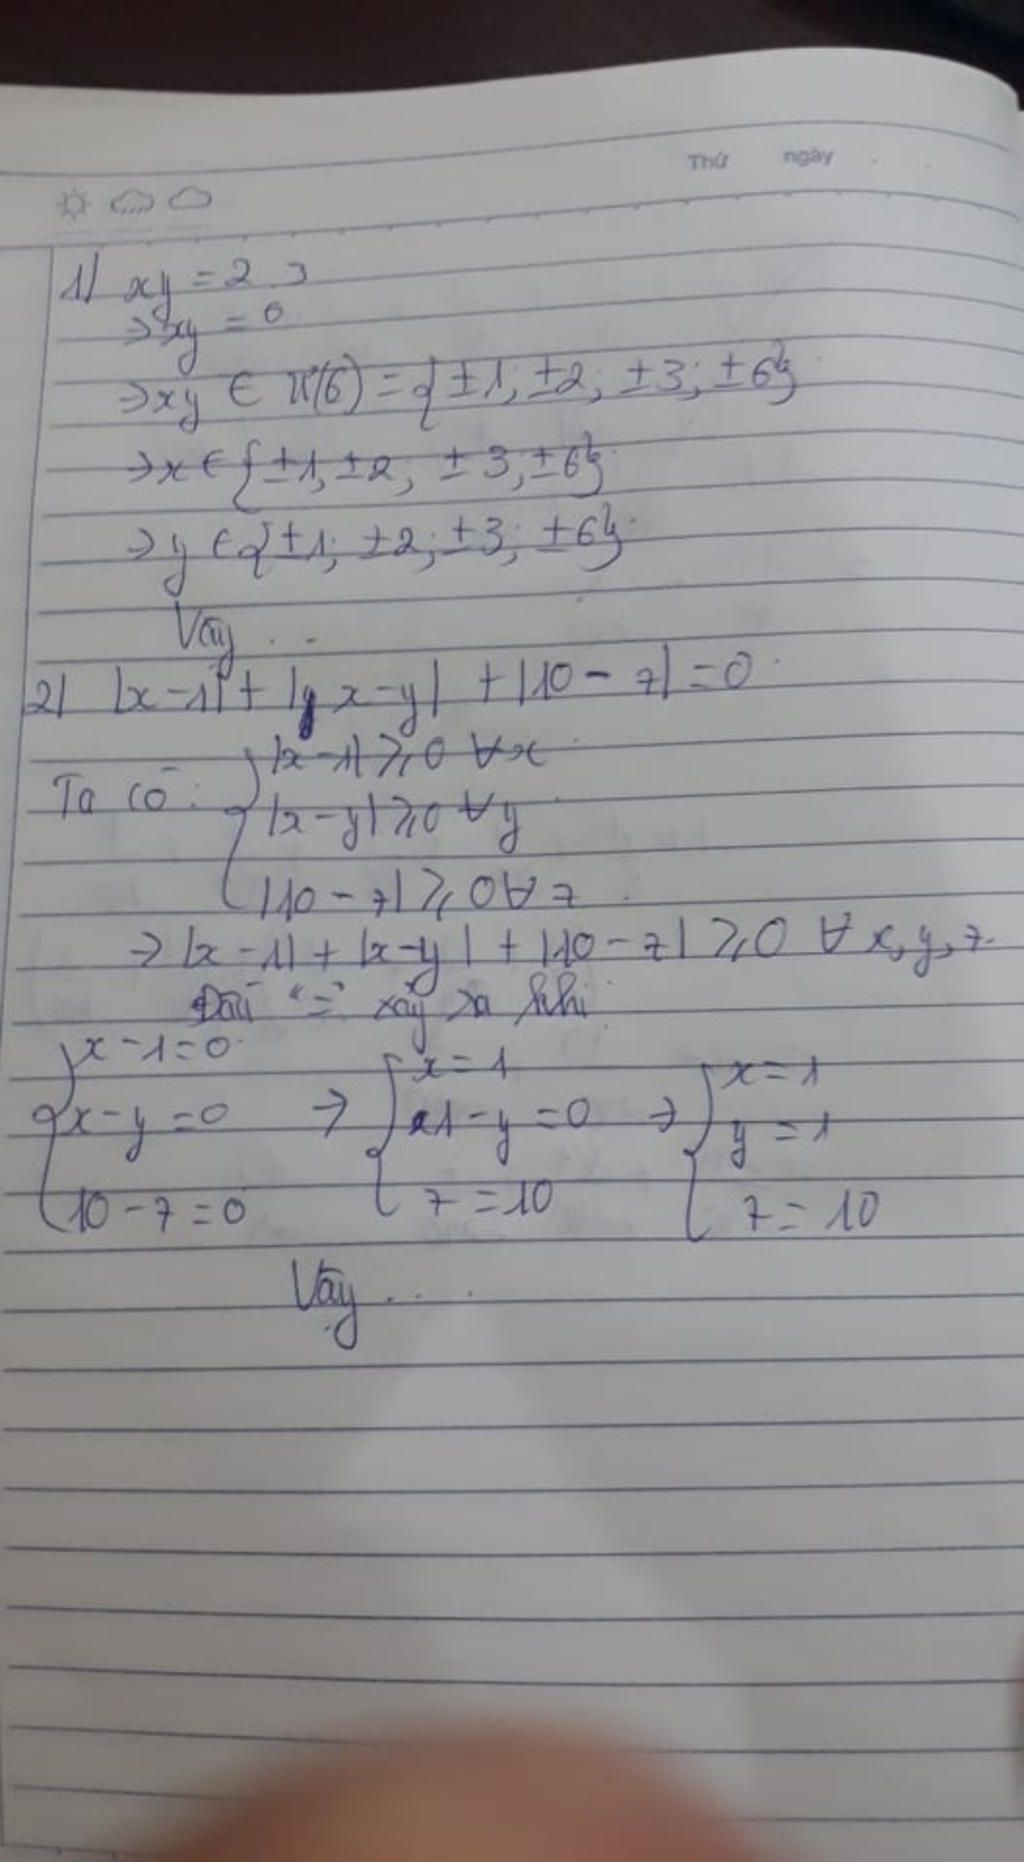 Thứ ngày
1) xy = 2.3
⇒ xy = 6
⇒ xy ∈ Ư(6) = {±1; ±2; ±3; ±6}
⇒ x ∈ {±1; ±2; ±3; ±6}
⇒ y ∈ {±1; ±2; ±3; ±6}
Vậy ...
2) |x-1| + |x-y| + |10-z| = 0
|x-1| ≥ 0 ∀x
Ta có:
|x-y| ≥ 0 ∀y
|10-z| ≥ 0 ∀z
⇒ |x-1| + |x-y| + |10-z| ≥ 0 ∀ x, y, z.
Dấu "=" xảy ra khi
x-1=0 x=1 x=1
x-y=0 ⇒ 1-y=0 ⇒ y=1
10-z=0 z=10 z=10
Vậy ....